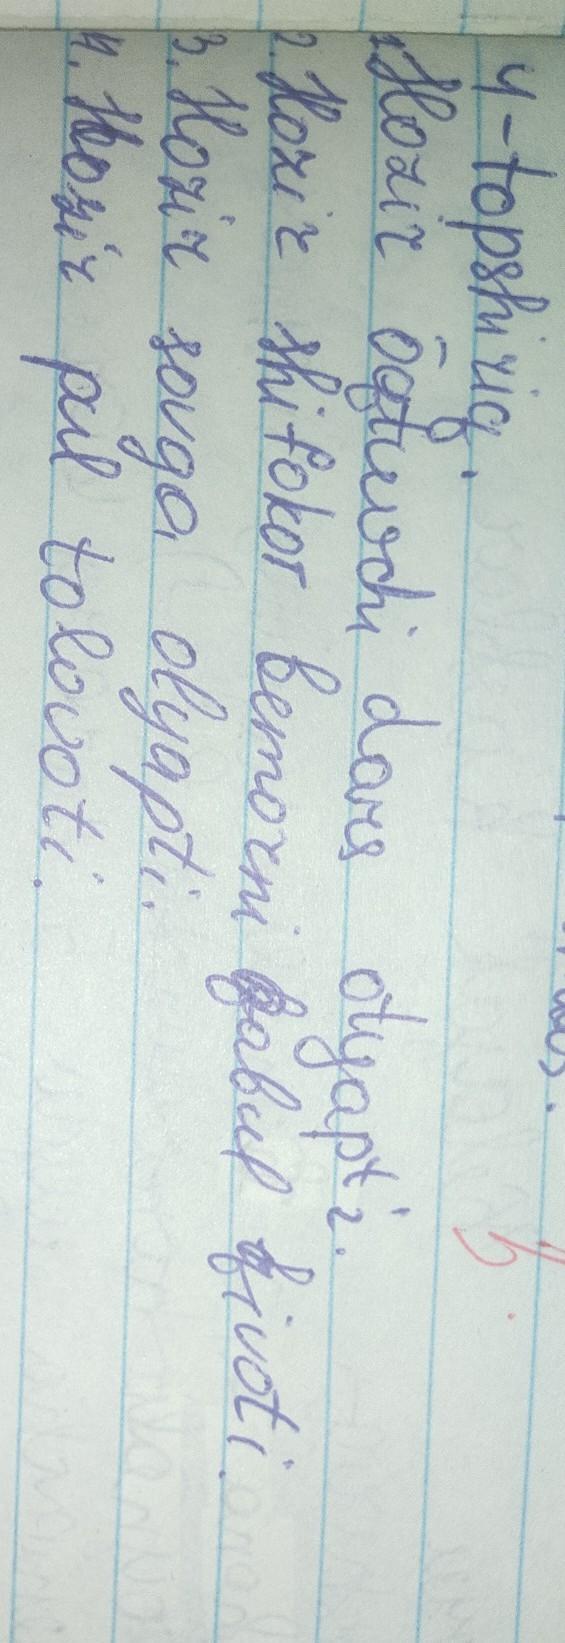 4-topshiriq.
1. Hozir ōqituvchi dars olyapti.
2. Hozir shifokor bemorni qabul qivoti.
3. Hozir sovga olyapti.
4. Hozir pul tolovoti.